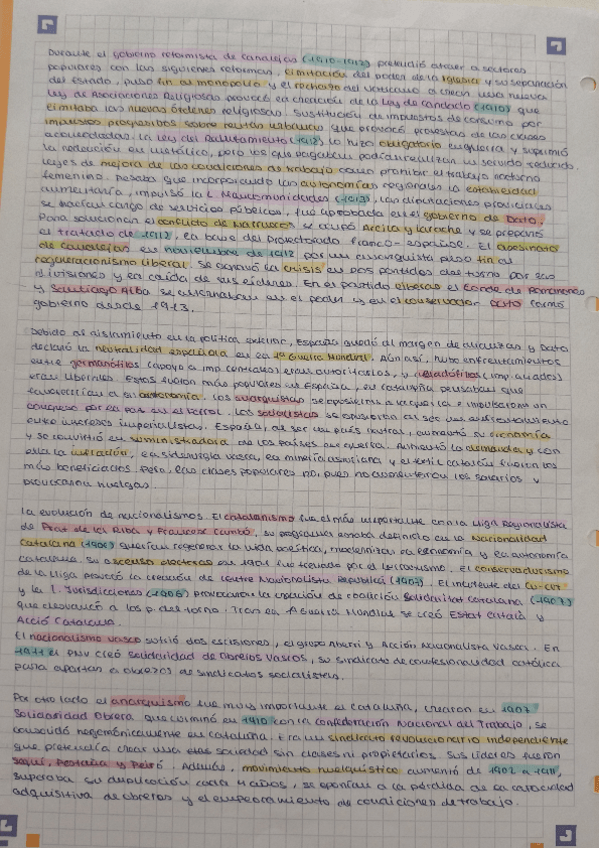 Durante el gobierno reformista de Canalejas (1910-1912) pretendió atraer a sectores
populares con las siguientes reformas. Limitación del poder de la Iglesia y su separación
del Estado, puso fin al monopolio y el rechazo del Vaticano a crear una nueva
Ley de Asociaciones Religiosas provocó la creación de la Ley de Candado (1910) que
limitaba las nuevas órdenes religiosas. Sustitución de impuestos de consumo por
impuestos progresivos sobre rentas urbanas que provocó protestas de las clases
acomodadas. La Ley del Reclutamiento (1912) lo hizo obligatorio en guerra y suprimió
la redención en metálico, pero los que pagaban podían realizar un servicio reducido.
Leyes de mejora de las condiciones de trabajo como prohibir el trabajo nocturno
femenino. Pensaba que incorporando las autonomías regionales la estabilidad
aumentaría, impulsó la L Mancomunidades (1913), las diputaciones provinciales
se hacían cargo de servicios públicos, fue aprobada en el gobierno de Dato.
Para solucionar el conflicto de Marruecos se ocupó Arcila y Larache y se preparó
el tratado de 1912, la base del protectorado franco-español. El asesinato
de Canalejas en noviembre de 1912 por un anarquista puso fin al
regeneracionismo liberal. Se agravó la crisis en los partidos del turno por las
divisiones y la caída de sus líderes. En el partido liberal el Conde de Romanones
y Santiago Alba se alternaban en el poder y en el conservador Dato formó
gobierno desde 1913.
Debido al aislamiento en la política exterior, España quedó al margen de alianzas y Dato
declaró la neutralidad española en la 1a Guerra Mundial. Aún así, hubo enfrentamientos
entre germanófilos (apoyo a imp centrales) eran autoritarios, y aliadófilos (imp. aliados)
eran liberales. Estos fueron más populares en España, en cataluña pensaban que
favorecerían a su autonomía. Los anarquistas se opusieron a la guerra e impulsaron un
congreso por la paz en el Ferrol. Los socialistas se opusieron al ser un enfrentamiento
entre intereses imperialistas. España, al ser un país neutral, aumentó su economía
y se convirtió en suministradora de los países en guerra. Aumentó la demanda y con
ella la inflación, la siderurgia vasca, la minería asturiana y el textil catalán fueron los
más beneficiados pero, las clases populares no, pues no aumentaron los salarios y
provocaron huelgas.
La evolución de nacionalismos. El catalanismo fue el más importante con la Lliga Regionalista
de Prat de la Riba y Francesc Cambó, su programa estaba definido en la Nacionalidad
Catalana (1906) querían regenerar la vida política, modernizar la economía y la autonomía
catalana. Su ascenso electoral en 1901 fue frenado por el lerrouxismo. El conservadurismo
de la Lliga provocó la creación de Centre Nacionalista Republicà (1907). El incidente del Cu-cut
y la L. Jurisdicciones (1906) provocaron la creación de coalición Solidaritat Catalana (1907)
que desbancó a los p. del turno. Tras la Guerra Mundial se creó Estat Català y
Acció Catalana.
El nacionalismo vasco sufrió dos escisiones, el grupo Aberri y Acción Nacionalista Vasca. En
1911 el PNV creó Solidaridad de Obreros Vascos, su sindicato de confesionalidad católica
para apartar a obreros de sindicatos socialistas.
Por otro lado el anarquismo fue muy importante en cataluña, crearon en 1907
Solidaridad Obrera que culminó en 1910 con la Confederación Nacional del Trabajo, se
consolidó hegemónicamente en cataluña. Era un sindicato revolucionario independiente
que pretendía crear una sociedad sin clases ni propietarios. Sus líderes fueron
Seguí, Pestaña y Peiró. Además, movimiento huelguístico aumentó de 1902 a 1911,
superaba su duplicación cada 4 años, se oponían a la pérdida de la capacidad
adquisitiva de obreros y el empeoramiento de condiciones de trabajo.